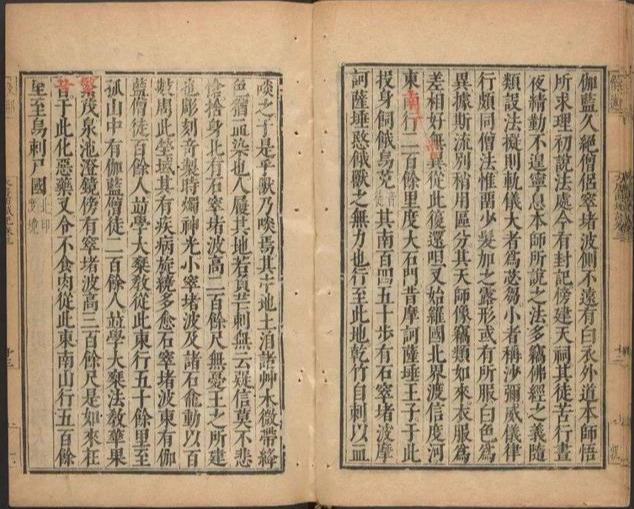 伽藍久絕僧侶窣堵波側不遠有白衣外道本師悟
所求理初說法處今有封記傍建天祠其徒苦行晝
夜精勤不遑寧息本師所說之法多竊佛經之義隨
類設法擬則軌儀大者爲苾芻小者稱沙彌威儀律
行頗同僧法惟畱少髮加之露形或有所服白色爲
異據斯流別稍用區分其天師像竊類如來衣服爲
差相好無異從此復還呾叉始羅國北界渡信度河
東南行二百餘里度大石門昔摩訶薩埵王子于此
投身飼餓烏菟音徒其南百四五十步有石窣堵波摩
訶薩埵愍餓獸之無力也行至此地乾竹自刺以血
啖之于是乎獸乃啖焉其中地土洎諸艸木微帶絳
色猶血染也人履其地若負芒刺無云疑信莫不悲
愴捨身北有石窣堵波高二百餘尺無憂王之所建
也彫刻竒製時燭神光小窣堵波及諸石龕動以百
數周此塋域其有疾病旋繞多愈石窣堵波東有伽
藍僧徒百餘人竝學大乘敎從此東行五十餘里至
孤山中有伽藍僧徒二百餘人竝學大乘法敎華果
繁茂泉池澄鏡傍有窣堵波高二百餘尺是如來在
昔于此化惡藥叉令不食肉從此東南山行五百餘
里至烏剌尸國北印度境